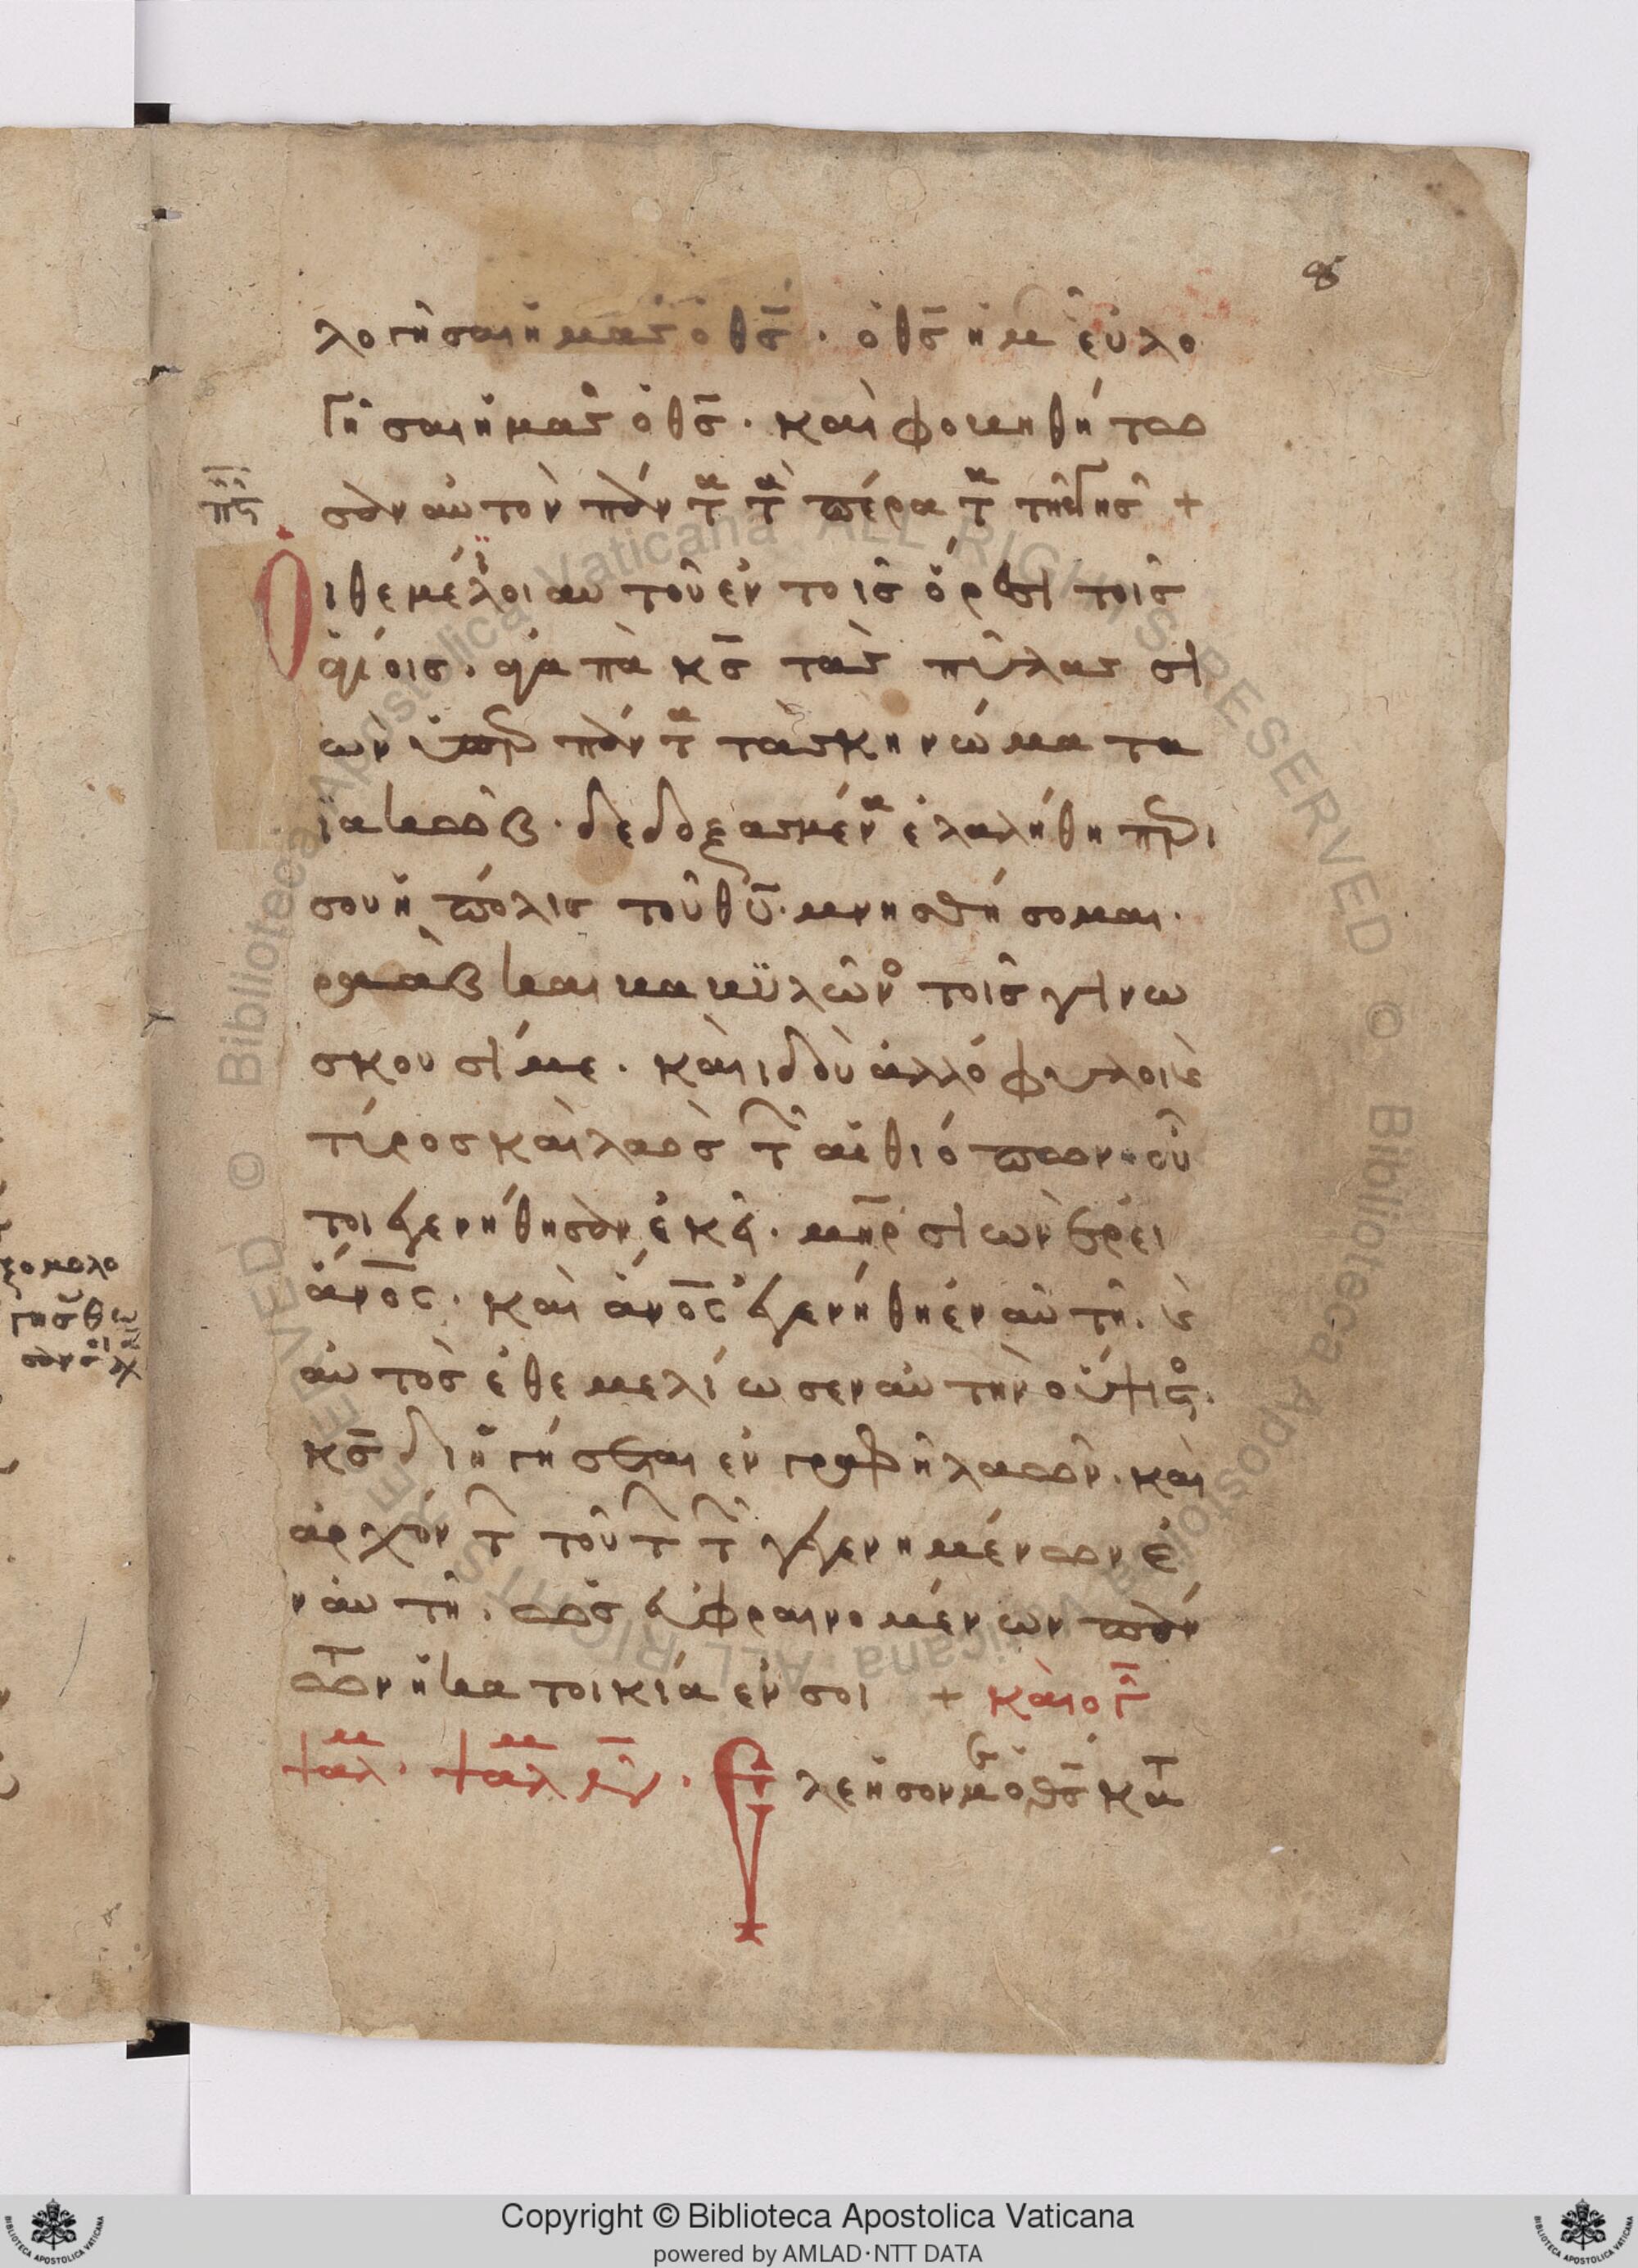 λογήσαι ἡμᾶς ὁ θς̄. ὁ θς̄ ἡμ εὐλο
γήσαι ἡμᾶς ὁ θς̄. καὶ φοιβηθήτω
σαν αὐτὸν πάντα τὰ πέρατα τῆς γῆς +
πϛ
Οἱ θεμέλιοι αὐτοῦ ἐν τοῖς ὄρεσι τοῖς
ἁγίοις. ἀγαπὰ κς̄ τὰς πύλας σι
ὼν ὑπὲρ πάντα τὰ σκηνώματα
ϊακώβ. δεδοξασμένα ἐλαλήθη περὶ
σου ἡ πόλις τοῦ θῦ. μνησθήσομαι.
ραὰβ καὶ βαβυλῶνο τοῖς γινω
σκουσί με. καὶ ἰδοὺ ἀλλόφυλοι κ
τύρος καὶ λαὸς τῶν αἰθιόπων. οὗ
τοι ἐγενήθησαν ἐκεῖ. μηρ̄ σιὼν ἐρεῖ
ἄνο̄ς. καὶ ἄνο̄ς ἐγενήθη ἐν αὐτῆ. κ
αὐτὸς ἐθεμελίωσεν αὐτὴν ὁ ὕψιστος.
κς̄ διηγήσεται ἐν γραφῆ λαῶν. καὶ
ἀρχόντων τούτων τῶν γεγενημένων ἐ
ν αὐτῆ. ὡς εὐφραινομένων πάν
των ἡ κατοικία ἐν σοι + καὶ ὁ γ
ψαλμ. ψαλμ ν. Ελεησόν με ὁ θς̄ κατ
ξομολο
γησ θω
σαν σοι λα